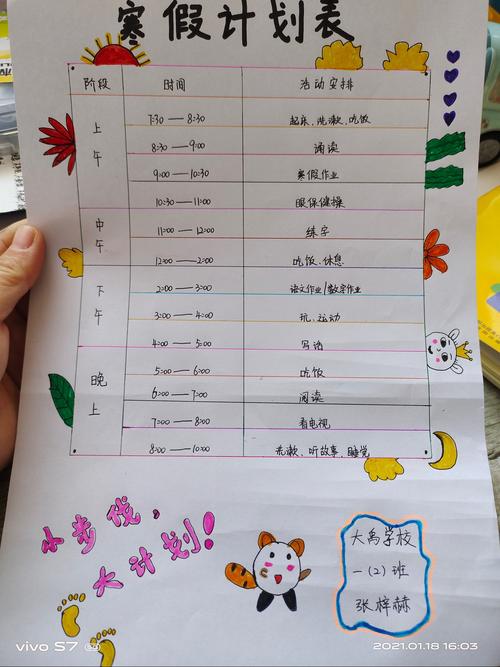 寒假计划表
阶段 时间 活动安排
上午 7:30——8:30 起床、洗漱、吃饭
8:30——9:00 诵读
9:00——10:30 寒假作业
10:30——11:00 眼保健操
中午 11:00——12:00 练字
12:00——2:00 吃饭、休息
下午 2:00——3:00 语文作业/数学作业
3:00——4:00 玩、运动
4:00——5:00 写话
晚上 5:00——6:00 吃饭
6:00——7:00 阅读
7:00——8:00 看电视
8:00——10:00 洗漱、听故事、睡觉
小步伐,
大计划!
大禹学校
一(2)班
张梓赫
vivo S7 5G
2021.01.18 16:03